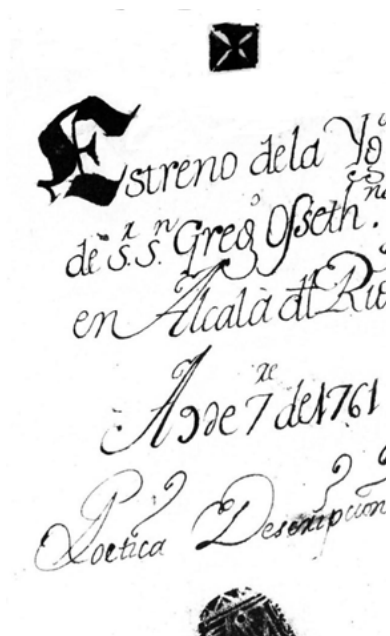 Estreno dela Yg
de S.r S.n Grego Osseth.no
en Alcalà dl Rio
A 9 de 7re de 1761
Poetica Descripcion